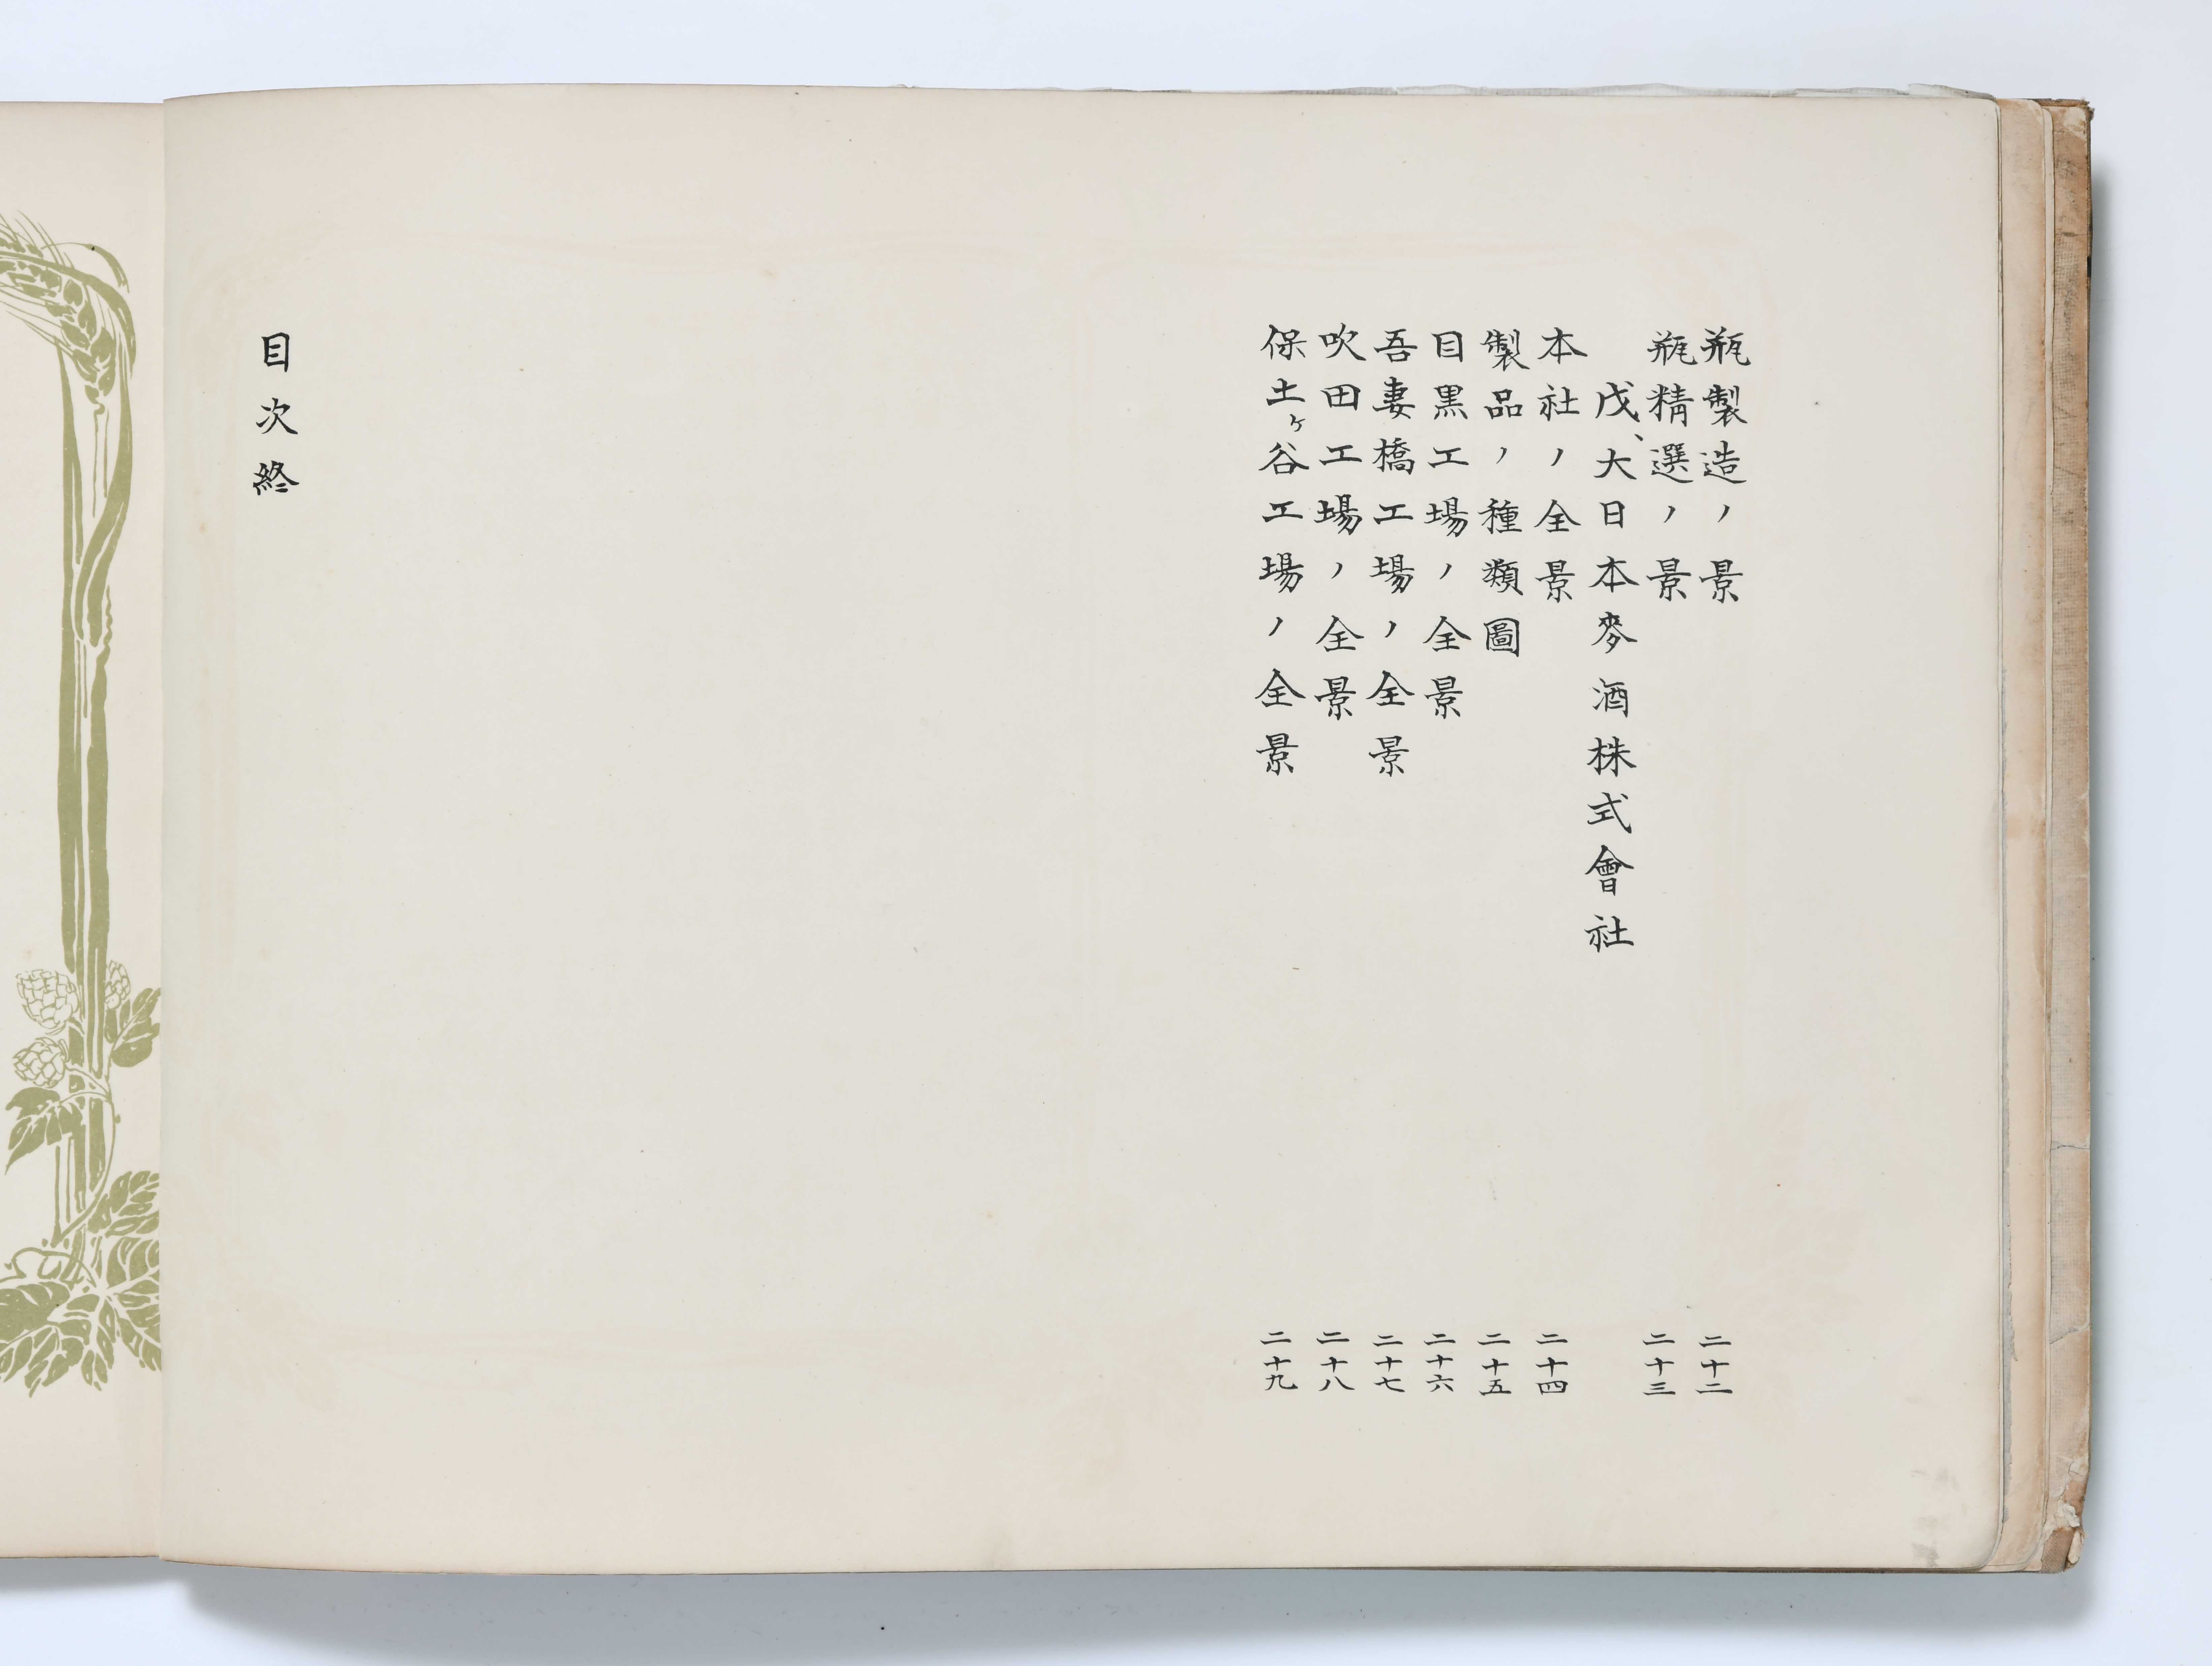 瓶製造ノ景 二十二
瓶精選ノ景 二十三
戊、大日本麥酒株式會社
本社ノ全景 二十四
製品ノ種類圖 二十五
目黒工場ノ全景 二十六
吾妻橋工場ノ全景 二十七
吹田工場ノ全景 二十八
保土ヶ谷工場ノ全景 二十九
目次終